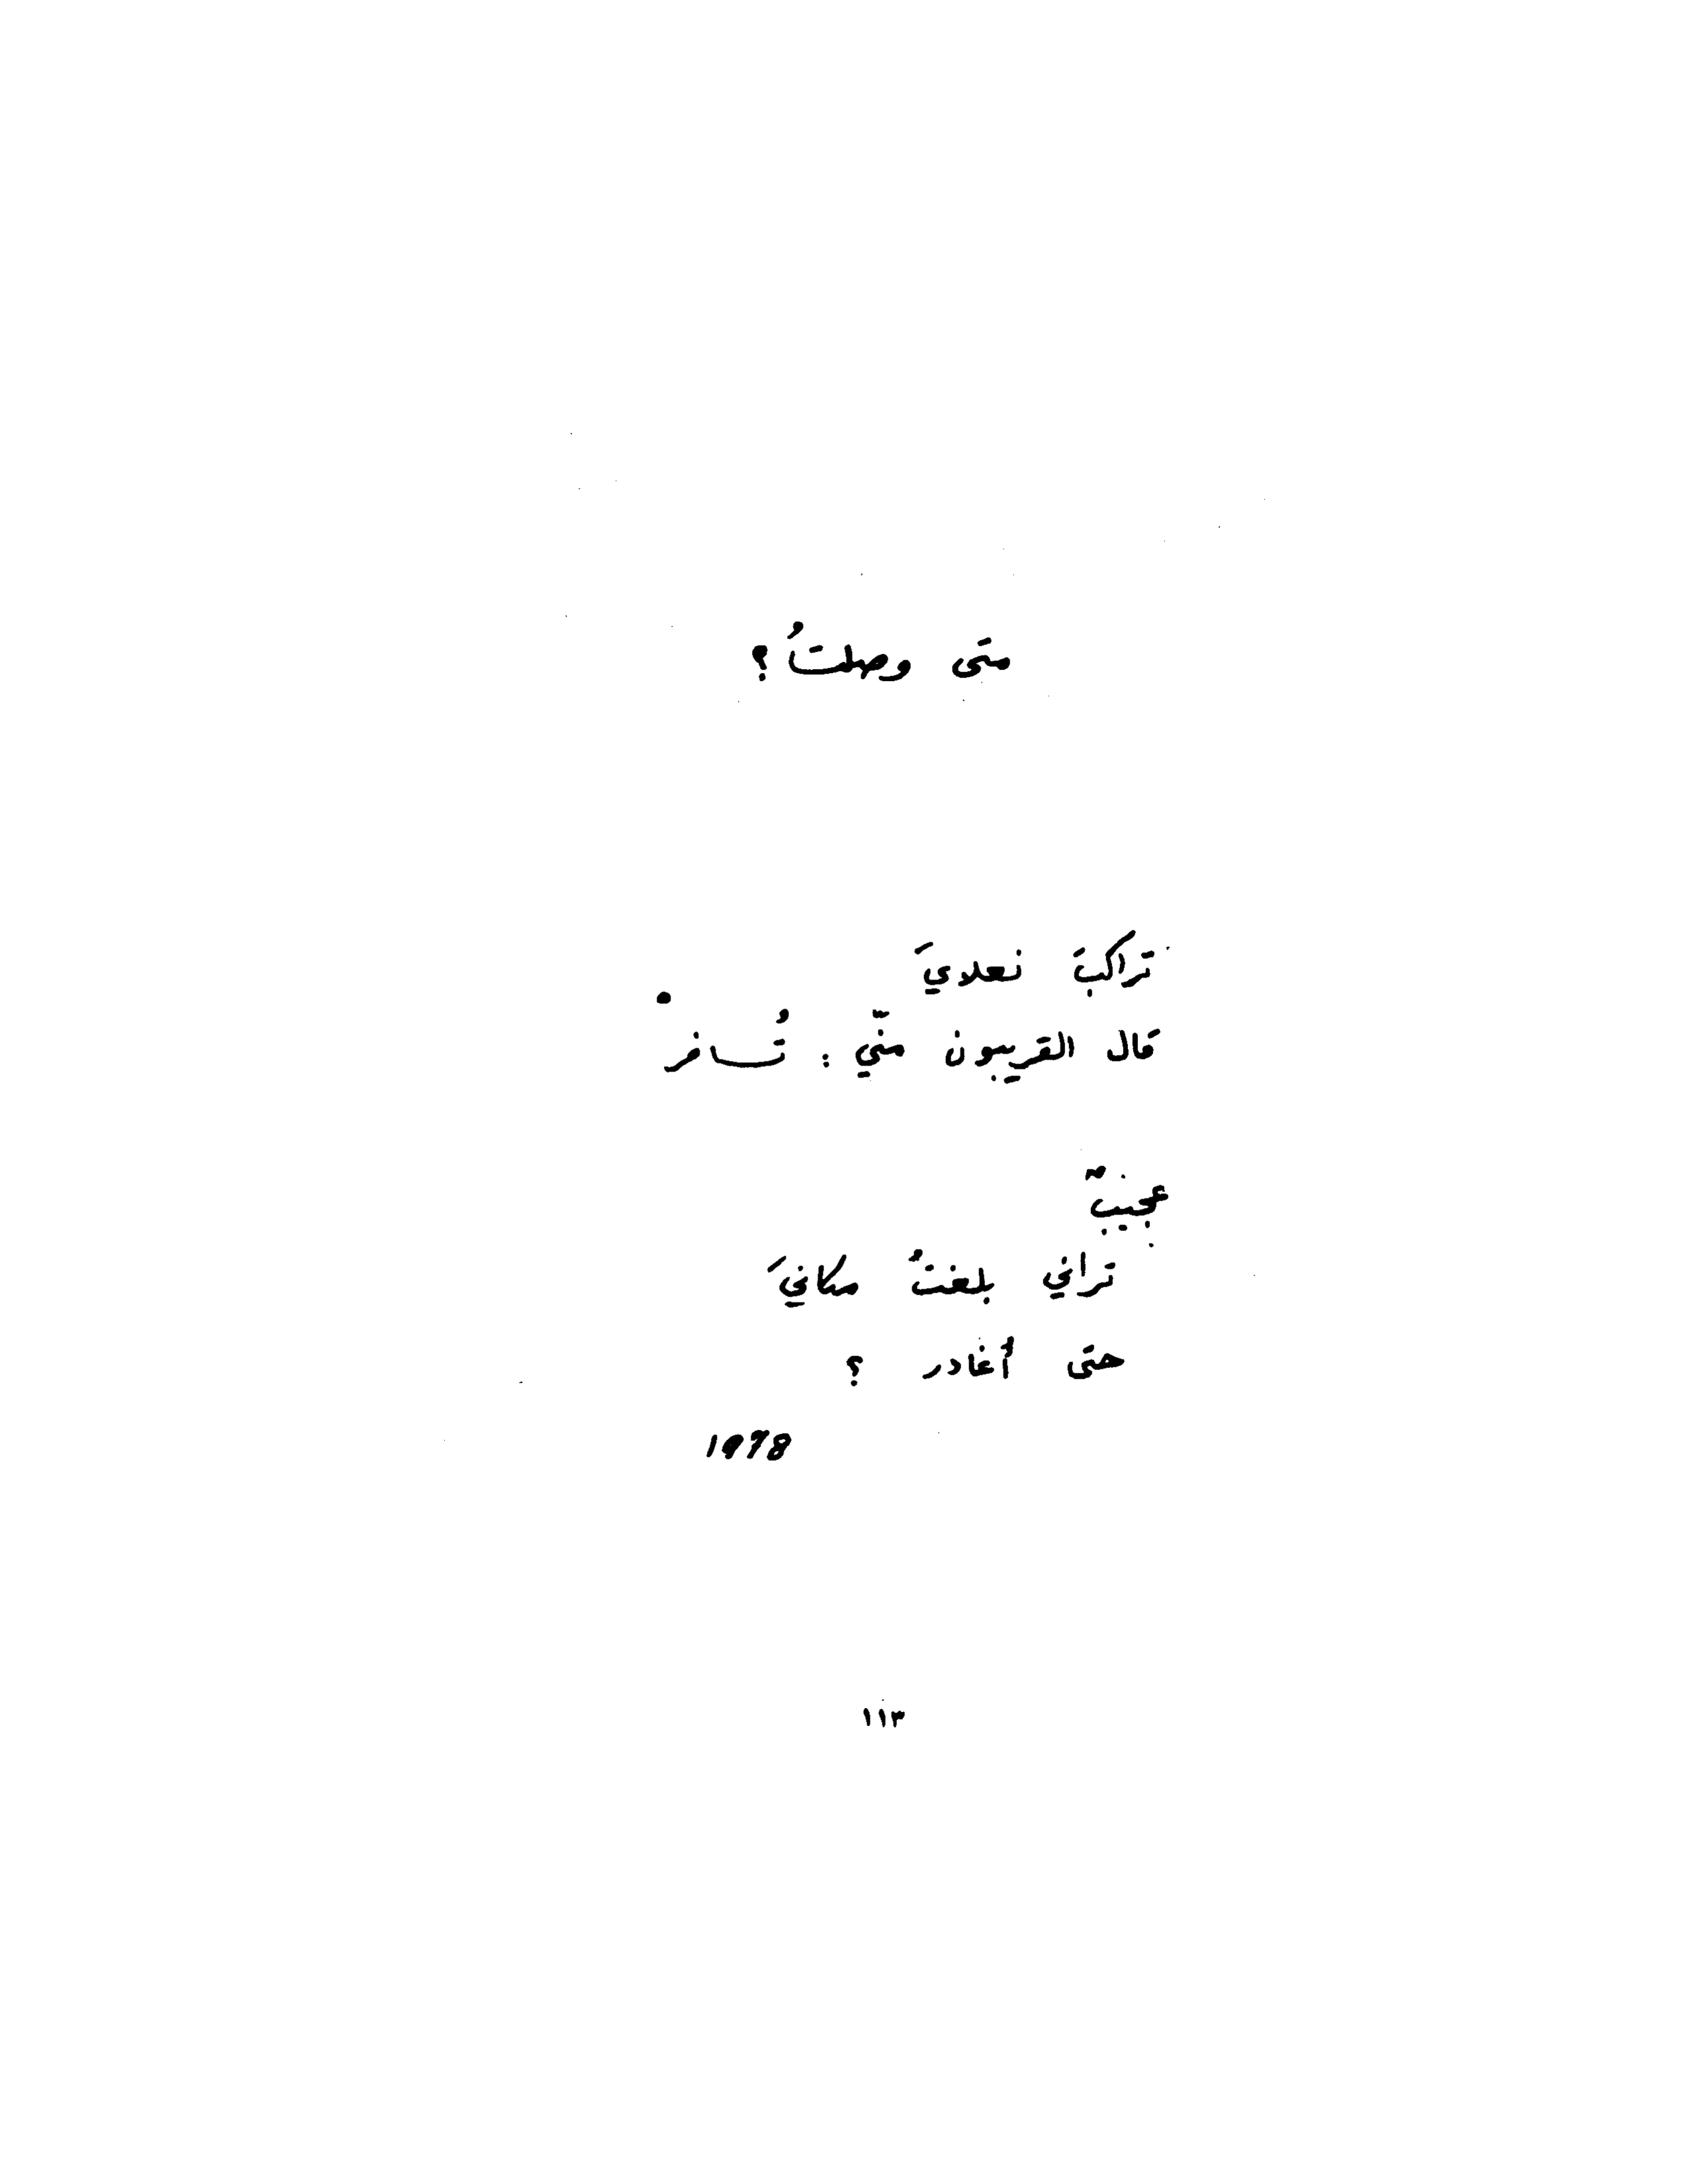 متى وصلتُ؟
تراكبَ نعلايَ
قال القريبون منّي : تُسافرْ
عجيبٌ
تراني بلغتُ مكانيَ
حتى أُغادر ؟
1978
١١٣